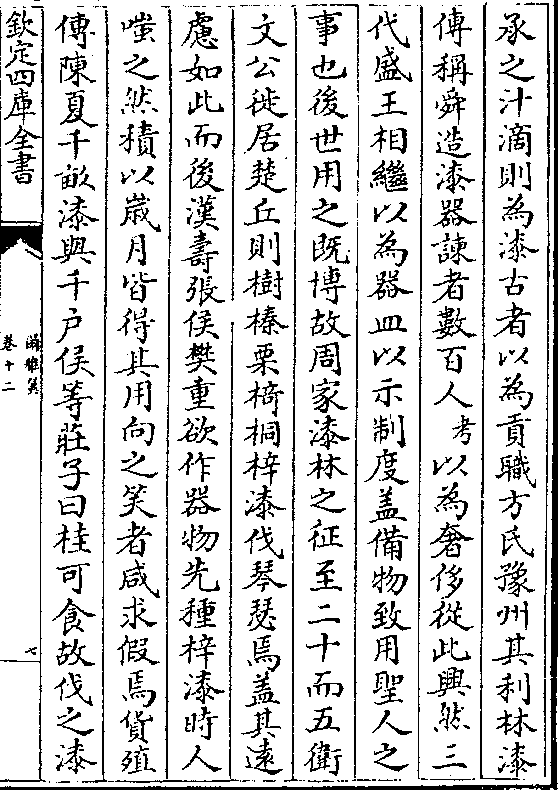 承之汁滴則為漆古者以為貢職方氏豫州其利林漆
傳稱舜造漆器諫者數百人考以為奢侈從此興然三
代盛王相繼以為器皿以示制度盖備物致用聖人之
事也後世用之既博故周家漆林之征至二十而五衛
文公徙居楚丘則樹榛栗椅桐梓漆伐琴瑟焉盖其遠
慮如此而後漢壽張侯樊重欲作器物先種梓漆時人
嗤之然積以嵗月皆得其用向之笑者咸求假焉貨殖
傳陳夏千畝漆與千戶侯等莊子曰桂可食故伐之漆
欽定四庫全書
爾雅翼
卷十二
七